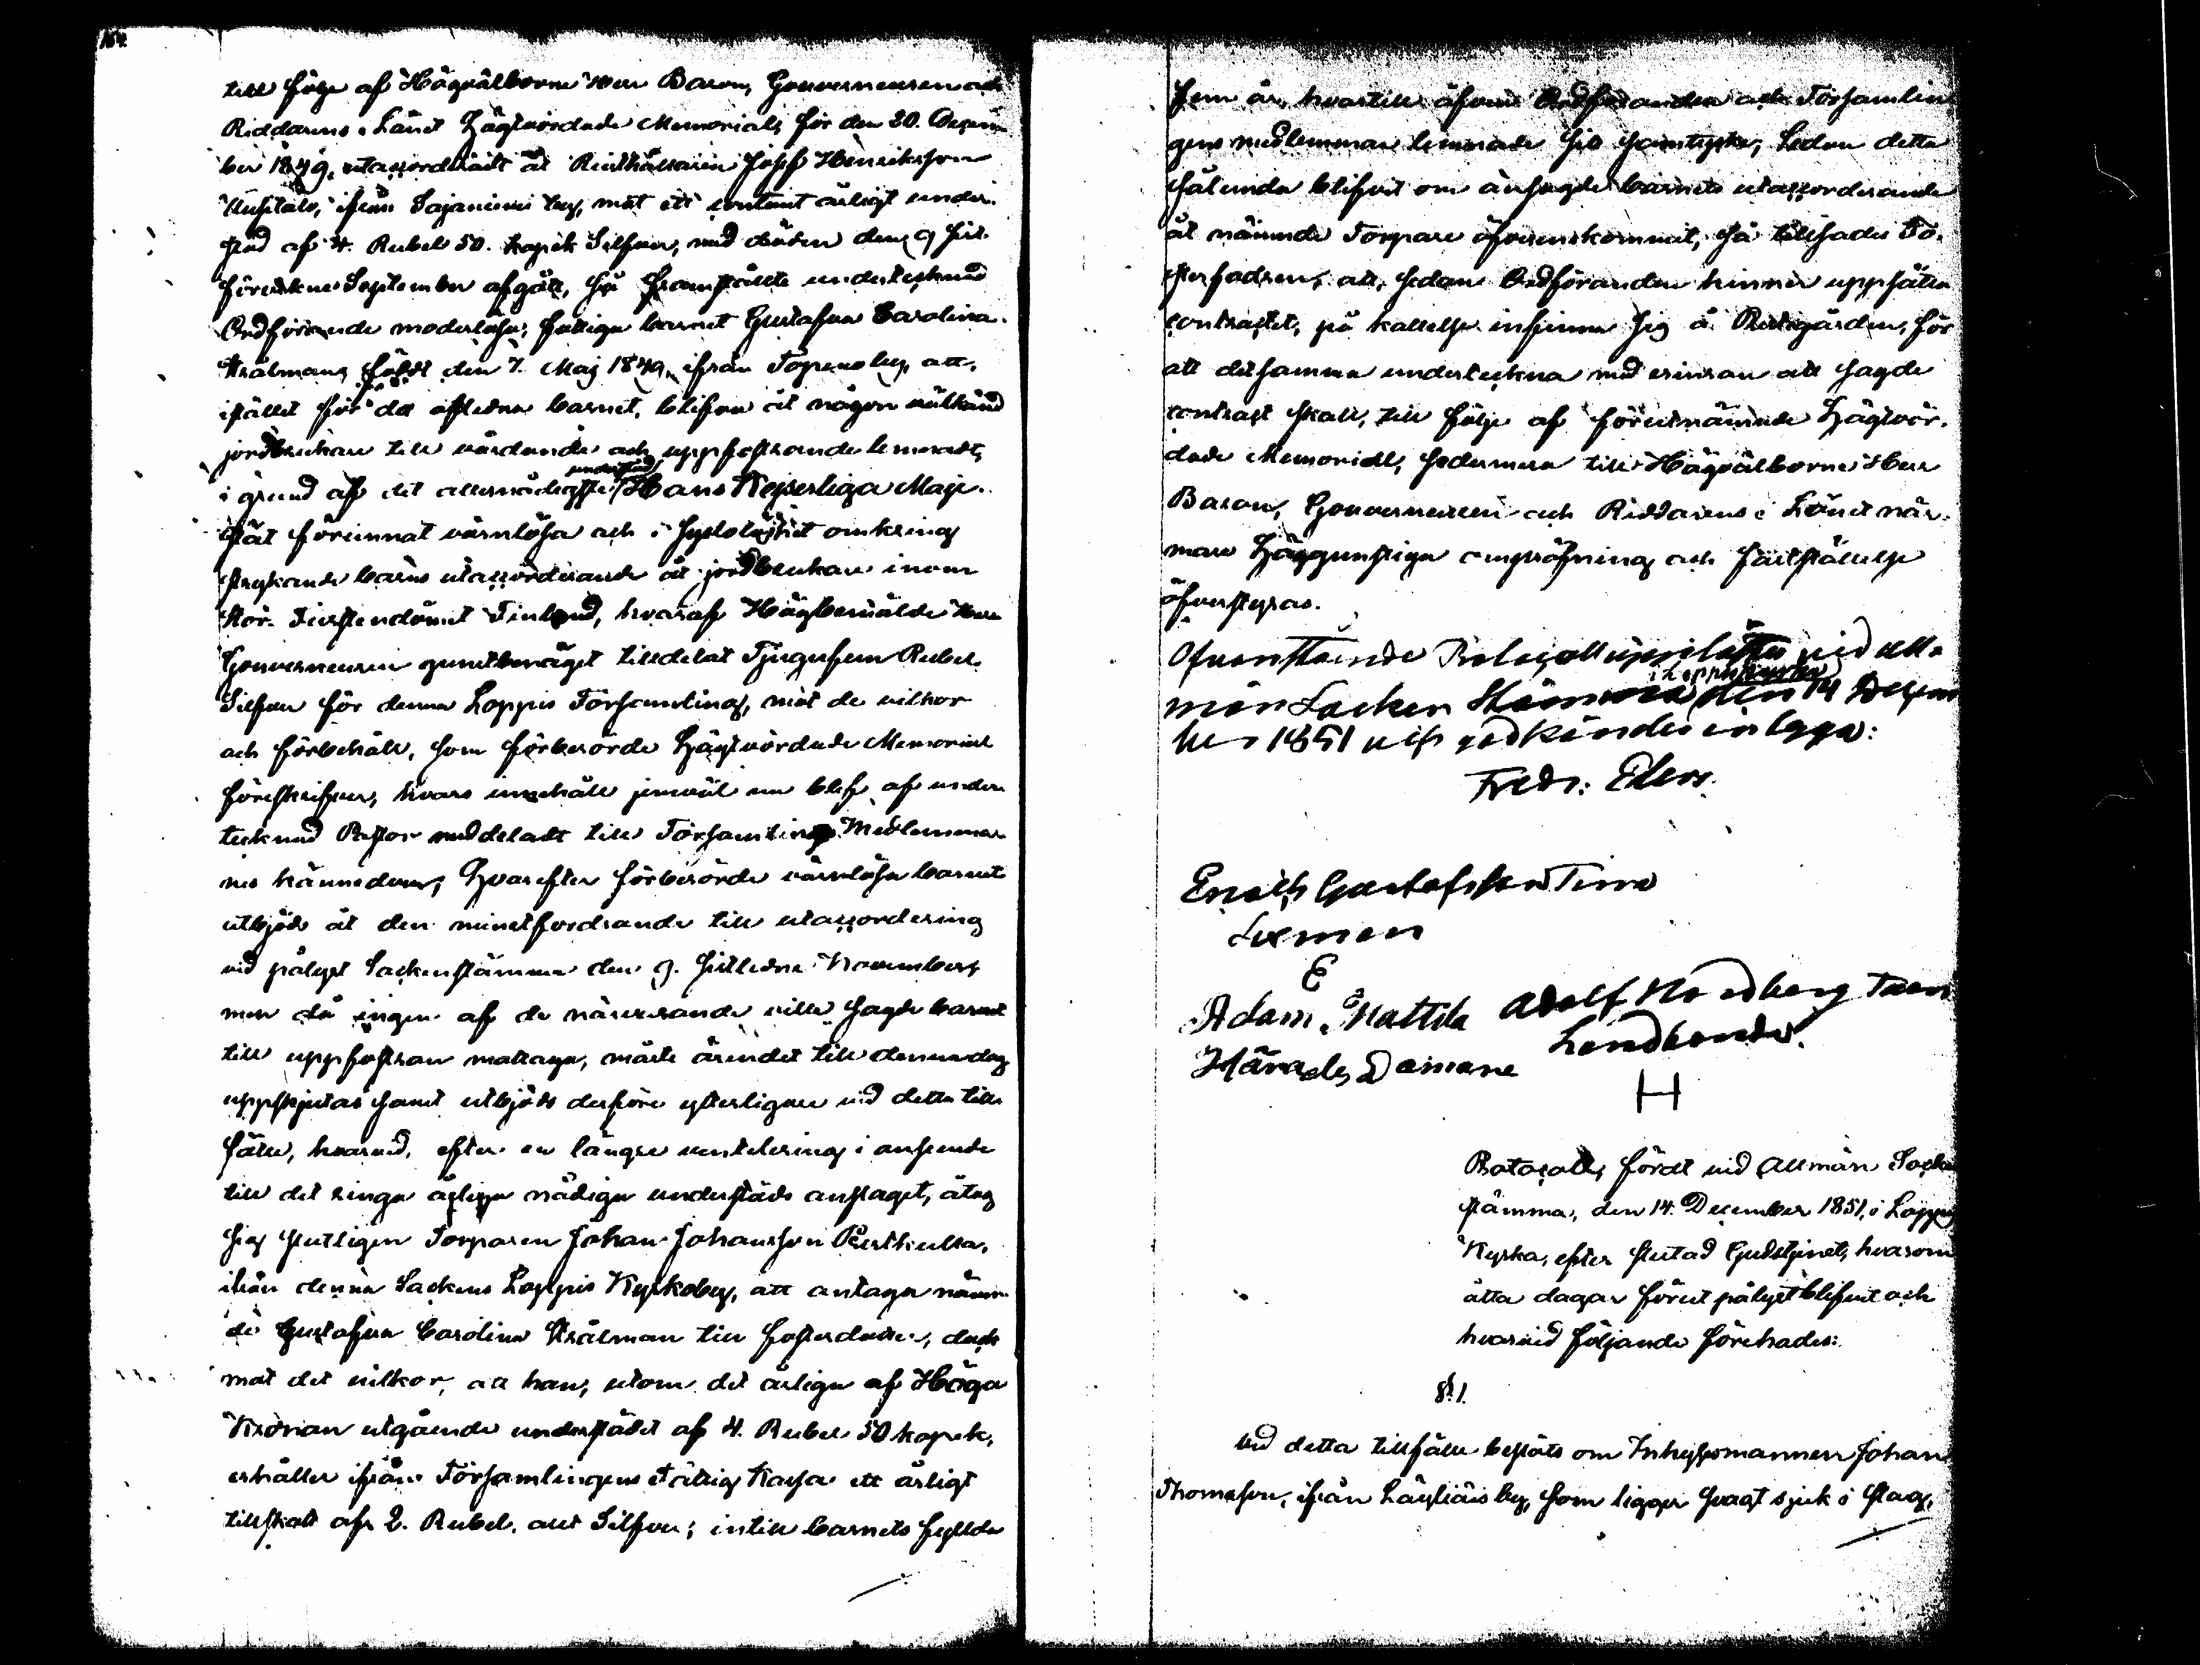 till följe af Högvälborne Herr Baron, Gouverneuren och
Riddarens i Länet Högtvördade Memorial, för den 20. Decem
ber 1849, utackorderadt åt Rusthållaren Josef Henriksson
ifrån Sajaniemi by, mot ett contant årligt under-
stöd af 4. Rubel 50. kopek Silfver, med döden den 9 sist-
förvekne September afgått, så framställte undertecknad
Ordförande moderlösa, fattiga barnet Gustafva Carolina
Stråhlmans födt den 7. Maj 1849, ifrån Topeno by, att,
istället för det aflidna barnet, blifva åt någon välkänd
jordbrukare till vårdande och uppfostrande lemnadt,
i grund af det allernådigste understöd Hans Kejserliga Maje-
stät förunnat värnlösa och i sysslolöshet omkring
strykande barns utackorderande åt jordbrukare inom
Stor-Furstendömet Finland, hvaraf Högbemälde Herr
Gouverneuren gunstbenäget tilldelat Tjugufem Rubel
Silfver för denna Loppis Församling, mot de vilkor
och förbehåll, som förberörde Högtvördade Memorial
föreskrifver, hvars innehåll jemväl nu blef af under-
tecknad Pastor meddeladt till Församlings Medlemmar-
nes kännedom; Hvarefter förberörde värnlösa barnet
utbjöds åt den minstfordrande till utackordering
vid pålyst Sockenstämma den 9. sistledne November,
men då ingen af de närvarande ville sagde barnet
till uppfostran mottaga, måste ärendet till denna dag
uppskjutas samt utbjöds derföre ytterligare vid detta till-
fälle, hvarvid, efter en längre ventilering i anseende
till det ringa årliga nådiga understöds anslaget, åtog
sig slutligen Torparen Johan Johansson
ifrån denna Sockens Loppis Kyrkoby, att antaga nämn-
de Gustafva Carolina Stråhlman till fosterdotter, dock
mot det vilkor, att han, utom det årliga af Höga
Kronan utgående understödet af 4. Rubel 50 kopek,
erhåller ifrån Församlingens Fattig Kassa ett årligt
tillskott af 2. Rubel, allt Silfver; intill barnets fyllda
fem år, hvartill äfven Ordföranden och Församlin
gens medlemmar lemnade sitt samtycke; Sedan detta
sålunda blifvit om ansagde barnets utackorderande
åt nämnde Torpare öfverenskommit, så tillsades Fo-
sterfadren, att, sedan Ordföranden hinner uppsätta
contractet, på kallelse infinna sig å Prestgården, för
att detsamma underteckna med erinran att sagde
contract skall, till följe af förutnämnde Högtvör-
dade Memorial, sedermera till Högvälborne Herr
Baron, Gouverneuren och Riddarens i Länet när-
mare Höggunstiga ompröfning och fastställelse
öfverstyras.
Ofvanstående Protocoll uppläste vid all-
män Socken Stämma i Loppis kyrka den 14 Decem
ber 1851 och godkändes intyga:
Fredr: Elers.
Erich Gustafsson Tirra
Lexmen
E
Adam Mattila Adolf Nordberg
Härads Domare Landbonde.
H
Protocoll, fördt vid Allmän Socken
stämma, den 14. December 1851, i Loppis
Kyrka, efter slutad Gudstjenst, hvarom
åtta dagar förut pålyst blifvit och
hvarvid följande förehades:
§1.
Vid detta tillfälle beslöts om Inhyseomannen Johan
Thomasson, ifrån Läyliäis by, som ligger svagt sjuk i slag,